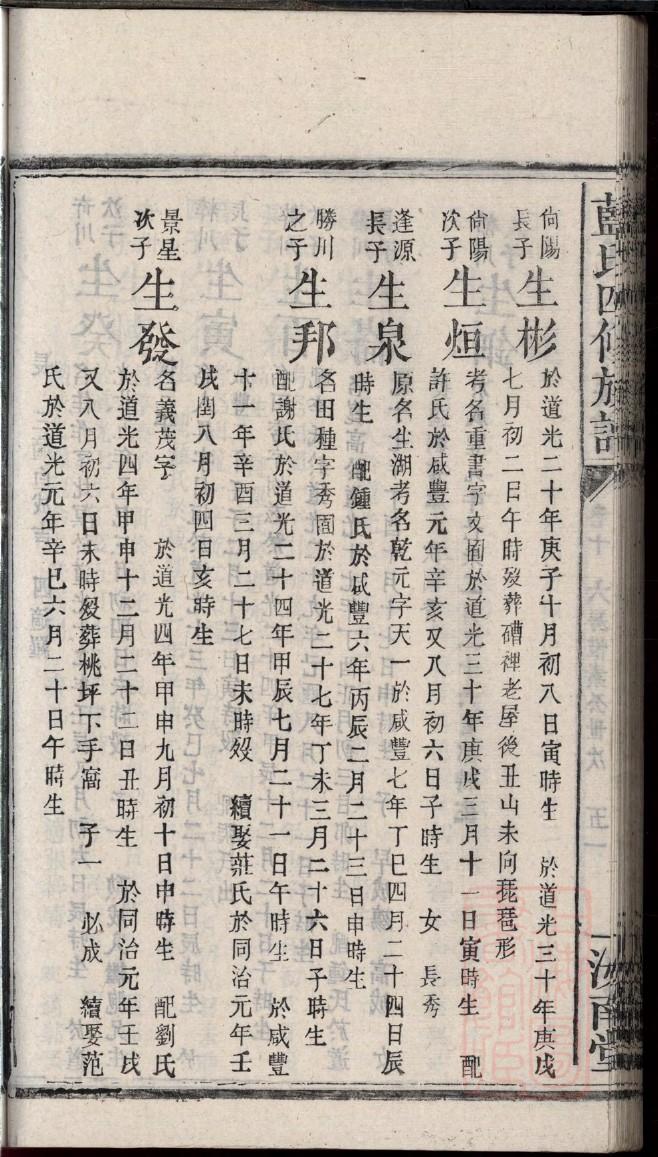 藍氏四修族譜
汝南堂
尙陽長子 生彬 於道光二十年庚子十月初八日寅時生 於道光三十年庚戌
七月初二日午時歿葬磆裡老屋後丑山未向琵琶形
尙陽次子 生烜 考名重書字文圃於道光三十年庚戌三月十一日寅時生 配
許氏於咸豐元年辛亥又八月初六日子時生 女 長秀
逢源長子 生泉 原名生湖考名乾元字天一於咸豐七年丁巳四月二十四日辰
時生 配鍾氏於咸豐六年丙辰二月二十三日申時生
勝川之子 生邦 名田種字秀圃於道光二十七年丁未三月二十六日子時生
配謝氏於道光二十四年甲辰七月二十一日午時生 於咸豐
十一年辛酉三月二十七日未時歿 續娶莊氏於同治元年壬
戌閏八月初四日亥時生
景星次子 生發 名義茂字 於道光四年甲申九月初十日申時生 配劉氏
於道光四年甲申十二月二十二日丑時生 於同治元年壬戌
又八月初六日未時歿葬桃坪下手窩 子一 必成 續娶范
氏於道光元年辛巳六月二十日午時生